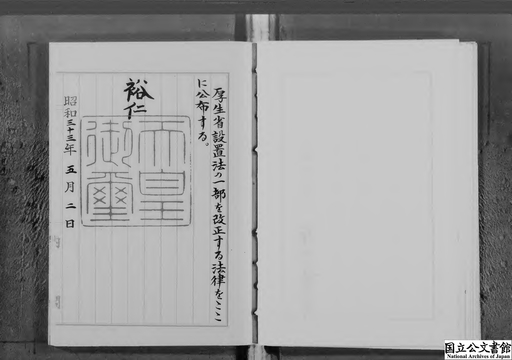 厚生省設置法の一部を改正する法律をここ
に公布する。
裕仁
天皇
御璽
昭和三十三年五月二日
国立公文書館
National Archives of Japan